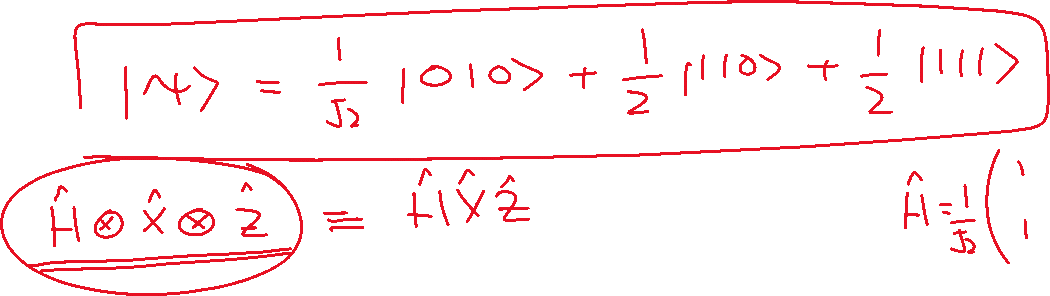 |ψ⟩ = 1/√2 |010⟩ + 1/2 |110⟩ + 1/2 |111⟩
Ĥ ⊗ X̂ ⊗ Ẑ ≡ ĤX̂Ẑ Ĥ = 1/√2 ( 1 1